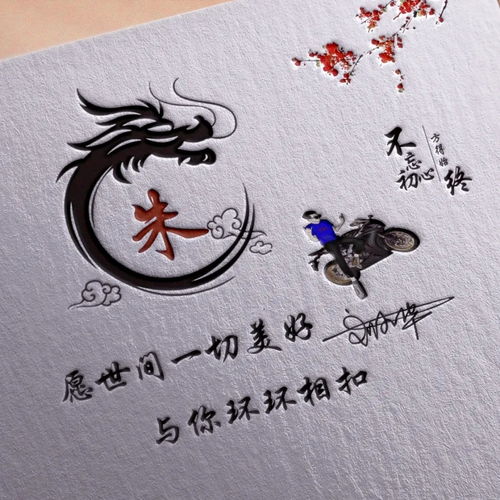 朱
不忘初心
方得始终
愿世间一切美好
与你环环相扣